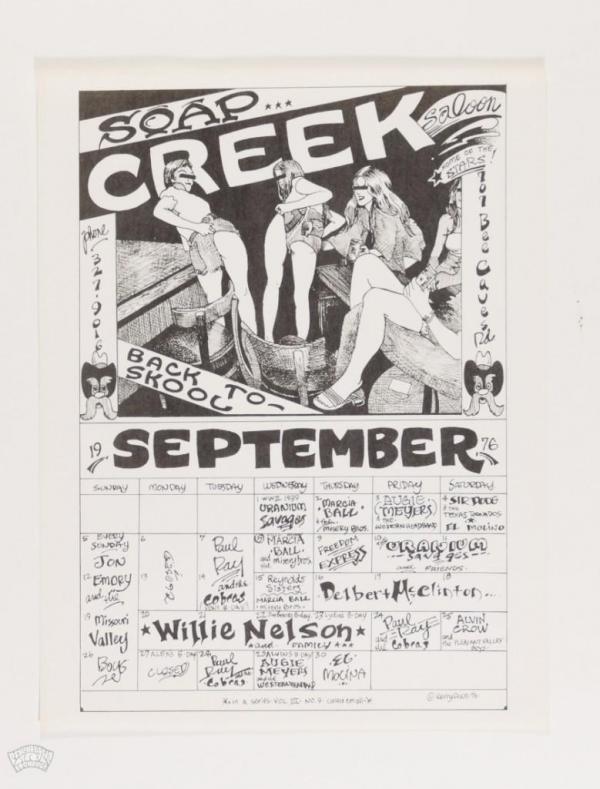 SOAP...
CREEK
Saloon
SOME OF THE
STARS!
707 Bee Caves Rd
phone
327-9016
BACK TO-
SKOOL
19 SEPTEMBER 76
SUNDAY MONDAY TUESDAY WEDNESDAY THURSDAY FRIDAY SATURDAY
1 WWII 1939
URANIUM
Savages
2
MARCIA
BALL
MISERY BROS.
3 AUGIE
MEYERS
& THE
WESTERN HEADBAND
4 SIR DOUG
& THE
TEXAS TORNADOS
EL MOLINO
5 EVERY
SUNDAY
JON
6
CLOSED
7
Paul
Ray
and the
Cobras
8 MARCIA
BALL
and the misery bros.
9
FREEDOM
EXPRESS
10 11
URANIUM
SAVAGES
and FRIENDS
12 EMORY
and the
13
14
15 Reynolds
Sisters
MARCIA BALL
misery Bros.
16 17 18
Delbert McClinton...
19 Missouri
Valley
20 21 22 23
Willie Nelson
and FAMILY
24
Paul
Ray
and the
Cobras
25 ALVIN
CROW
and the PLEASANT VALLEY
BOYS
26
Boys
27 ALEX'S B-DAY
CLOSED
28
Paul
Ray and the
Cobras
29 ALVIN'S B DAY
AUGIE
MEYERS
and the
WESTERN HEADBAND
30
EL
MOLINA
in a series VOL III NO. 9